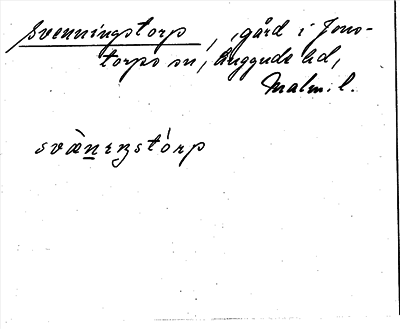 Svenningstorp, gård i Jons-
torps sn, Luggude hd,
Malm. l.
svä̀nıŋstórp